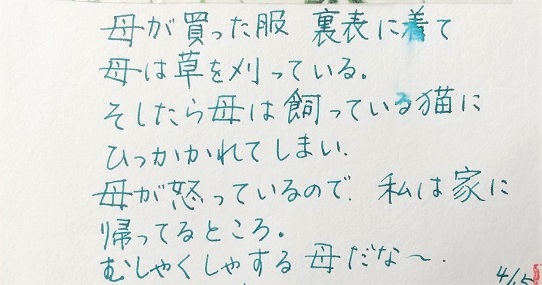 母が買った服 裏表に着て
母は草を刈っている。
そしたら母は飼っている猫に
ひっかかれてしまい.
母が怒っているので. 私は家に
帰ってるところ。
むしゃくしゃする 母だな〜.
4/15